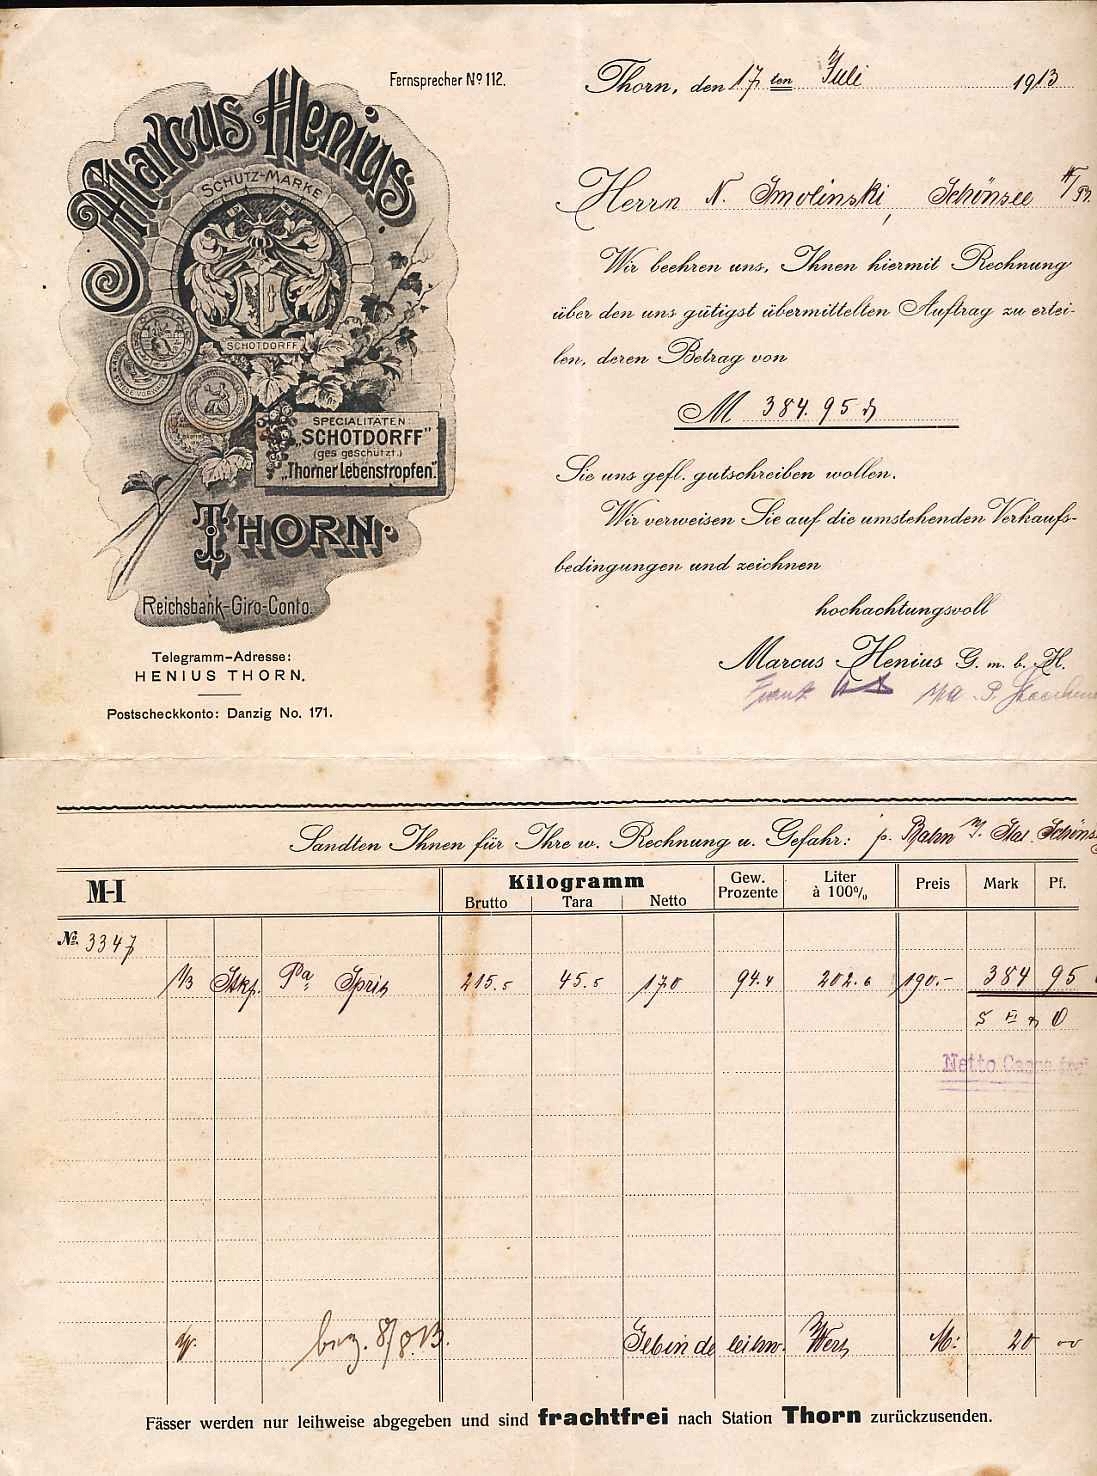 Fernsprecher No 112.
Marcus Henius.
SCHUTZ-MARKE
SCHOTDORFF
SPECIALITÄTEN
„SCHOTDORFF"
(ges geschützt.)
„Thorner Lebenstropfen".
THORN.
Reichsbank-Giro-Conto.
Telegramm-Adresse:
HENIUS THORN.
Postscheckkonto: Danzig No. 171.
Thorn, den 17 ten Juli 1913
Herrn N. Smolinski, Schönsee
Wir beehren uns, Ihnen hiermit Rechnung
über den uns gütigst übermittelten Auftrag zu ertei-
len, deren Betrag von
M 384.95
Sie uns gefl. gutschreiben wollen.
Wir verweisen Sie auf die umstehenden Verkaufs-
bedingungen und zeichnen
hochachtungsvoll
Marcus Henius G. m. b. H.
Sandten Ihnen für Ihre w. Rechnung u. Gefahr: p. Bahn
M-I Kilogramm Gew. Prozente Liter à 100% Preis Mark Pf.
Brutto Tara Netto
No. 3347
1/3 Stkf. Pa Sprit 215.5 45.5 170 94.4 202.6 190.- 384 95
Netto
bez. 8/8.13. Gebinde leihw. Wert M: 20 00
Fässer werden nur leihweise abgegeben und sind frachtfrei nach Station Thorn zurückzusenden.